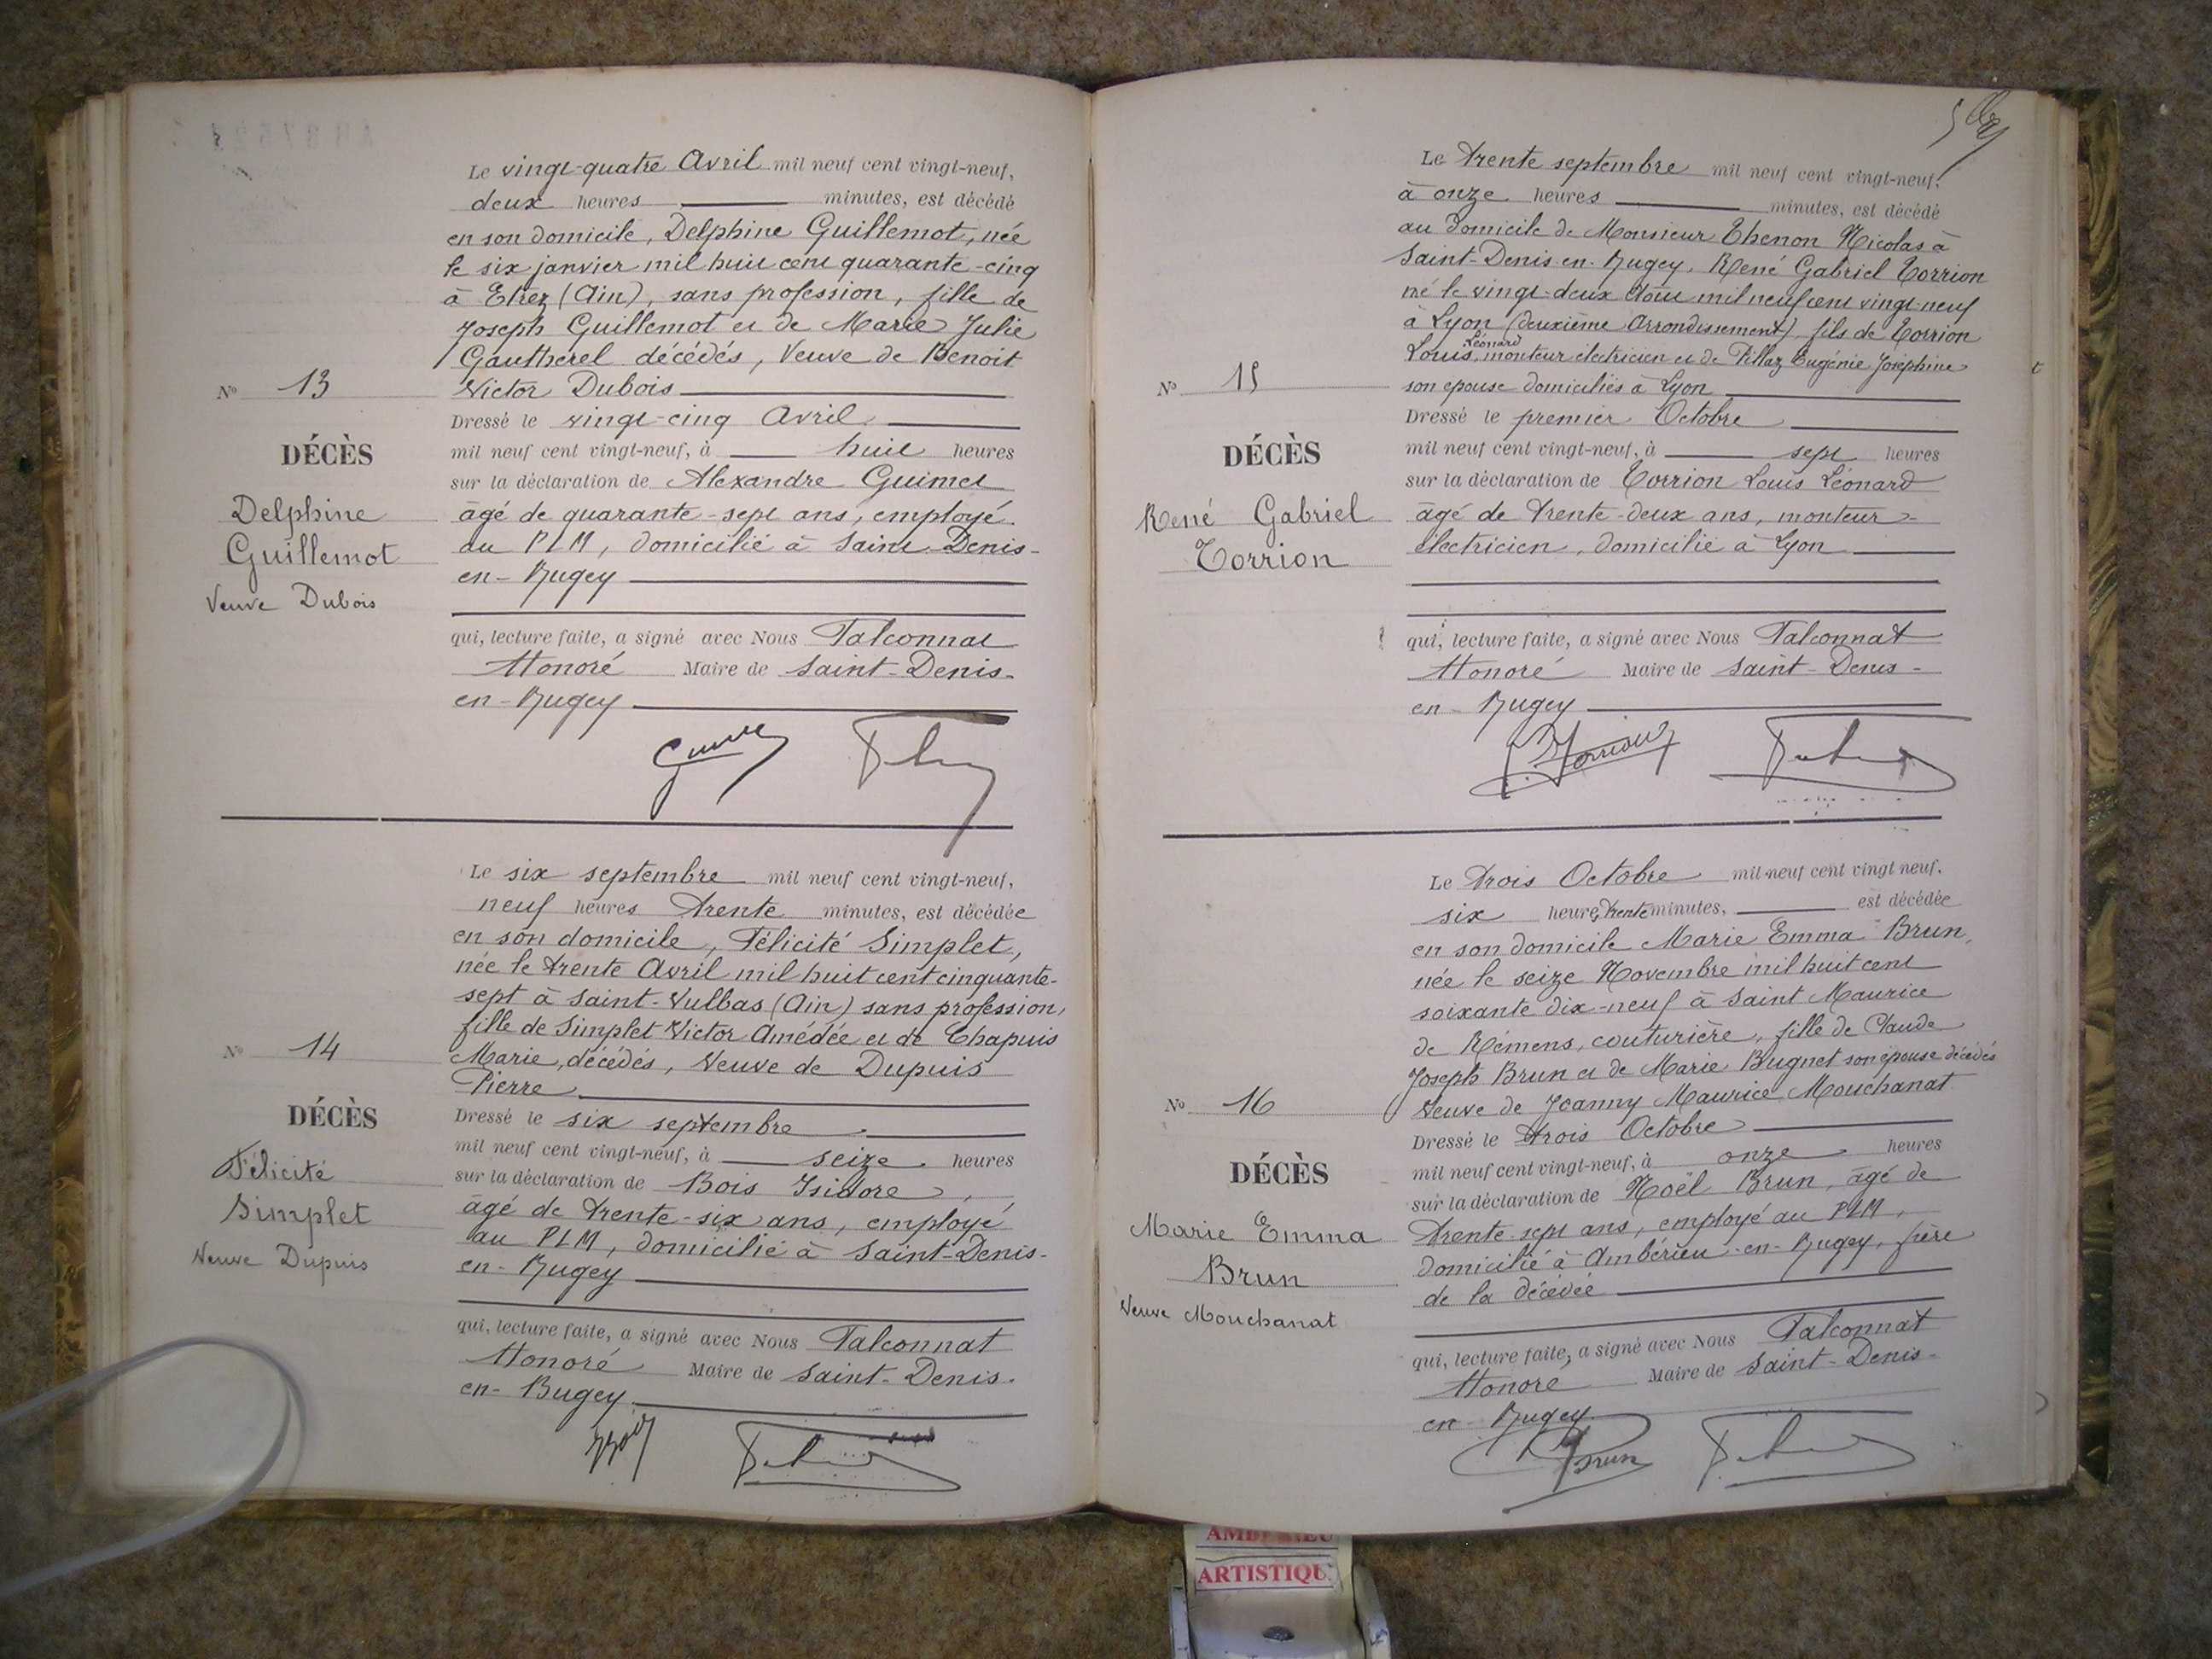 Le vingt-quatre Avril mil neuf cent vingt-neuf,
deux heures minutes, est décédé
en son domicile, Delphine Guillemot, née
le six janvier mil huit cent quarante-cinq
à Etrez (Ain), sans profession, fille de
Joseph Guillemot et de Marie Julie
Gautherel décédés, Veuve de Benoit
Victor Dubois
Nº 13
Dressé le vingt-cinq Avril
mil neuf cent vingt-neuf, à huit heures
DÉCÈS
sur la déclaration de Alexandre Guimet
Delphine
Guillemot
Veuve Dubois
âgé de quarante-sept ans, employé
au PLM, domicilié à Saint-Denis-
en-Bugey
qui, lecture faite, a signé avec Nous Falconnat
Honoré Maire de Saint-Denis-
en-Bugey
Le six septembre mil neuf cent vingt-neuf,
neuf heures trente minutes, est décédée
en son domicile, Félicité Simplet,
née le trente Avril mil huit cent cinquante-
sept à Saint-Vulbas (Ain) sans profession,
fille de Simplet Victor Amédée et de Chapuis
Marie, décédés, Veuve de Dupuis
Pierre
Nº 14
Dressé le six septembre
DÉCÈS
mil neuf cent vingt-neuf, à seize heures
sur la déclaration de Bois Isidore,
Félicité
Simplet
Veuve Dupuis
âgé de trente-six ans, employé
au PLM, domicilié à Saint-Denis-
en-Bugey
qui, lecture faite, a signé avec Nous Falconnat
Honoré Maire de Saint-Denis-
en-Bugey
Le trente septembre mil neuf cent vingt-neuf,
à onze heures minutes, est décédé
au domicile de Monsieur Thenon Nicolas à
Saint-Denis-en-Bugey, René Gabriel Torrion
né le vingt-deux Août mil neuf cent vingt-neuf
à Lyon (deuxième Arrondissement), fils de Torrion
Louis Léonard, monteur électricien et de Pillaz Eugénie Joséphine
son epouse domiciliés à Lyon
Nº 15
Dressé le premier Octobre
DÉCÈS
mil neuf cent vingt-neuf, à sept heures
sur la déclaration de Torrion Louis Léonard
René Gabriel
Torrion
âgé de trente-deux ans, monteur
électricien, domicilié à Lyon
qui, lecture faite, a signé avec Nous Falconnat
Honoré Maire de Saint-Denis-
en-Bugey
Le trois Octobre mil neuf cent vingt neuf.
six heures trente minutes, est décédée
en son domicile Marie Emma Brun,
née le seize Novembre mil huit cent
soixante dix-neuf à Saint Maurice
de Rémens, couturière, fille de Claude
Joseph Brun et de Marie Bugnet son épouse décédés
Veuve de Joanny Maurice Mouchanat
Nº 16
Dressé le trois Octobre
DÉCÈS
mil neuf cent vingt-neuf, à onze heures
sur la déclaration de Noël Brun, âgé de
Marie Emma
Brun
Veuve Mouchanat
trente-sept ans, employé au PLM,
domicilié à Ambérieu-en-Bugey, frère
de la décédée
qui, lecture faite, a signé avec Nous Falconnat
Honoré Maire de Saint-Denis-
en-Bugey
Brun
ARTISTIQU